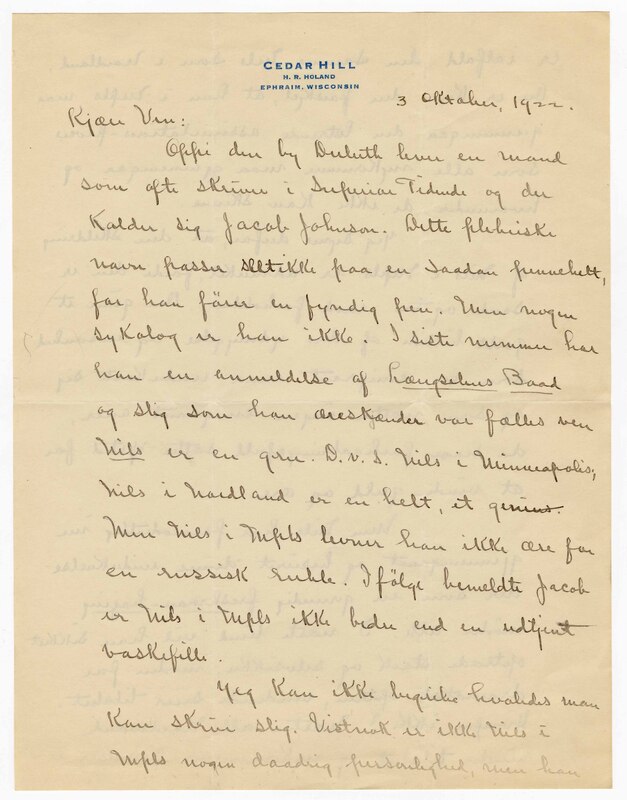 CEDAR HILL
H. R. HOLAND
EPHRAIM, WISCONSIN
3 Oktober, 1922.
Kjære Ven:
Oppi den by Duluth lever en mand
som ofte skriver i Superior Tidende og der
kalder sig Jacob Johnson. Dette plebeiske
navn passer slet ikke paa en saadan pennehelt,
for han förer en fyndig pen. Men nogen
sykolog er han ikke. I siste nummer har
han en anmeldelse af Længselens Baad
og slig som han æreskjænder vor fælles ven
Nils er en gru. D.v.s. Nils i Minneapolis;
Nils i Nordland er en helt, et geni.
Men Nils i Mpls levner han ikke ære for
en russisk ruble. Ifölge bemeldte Jacob
er Nils i Mpls ikke bedre end en udtjent
vaskefille.
Jeg kan ikke begribe hvoledes man
kan skrive slig. Vistnok er ikke Nils i
Mpls nogen daadrig personlighed, men han